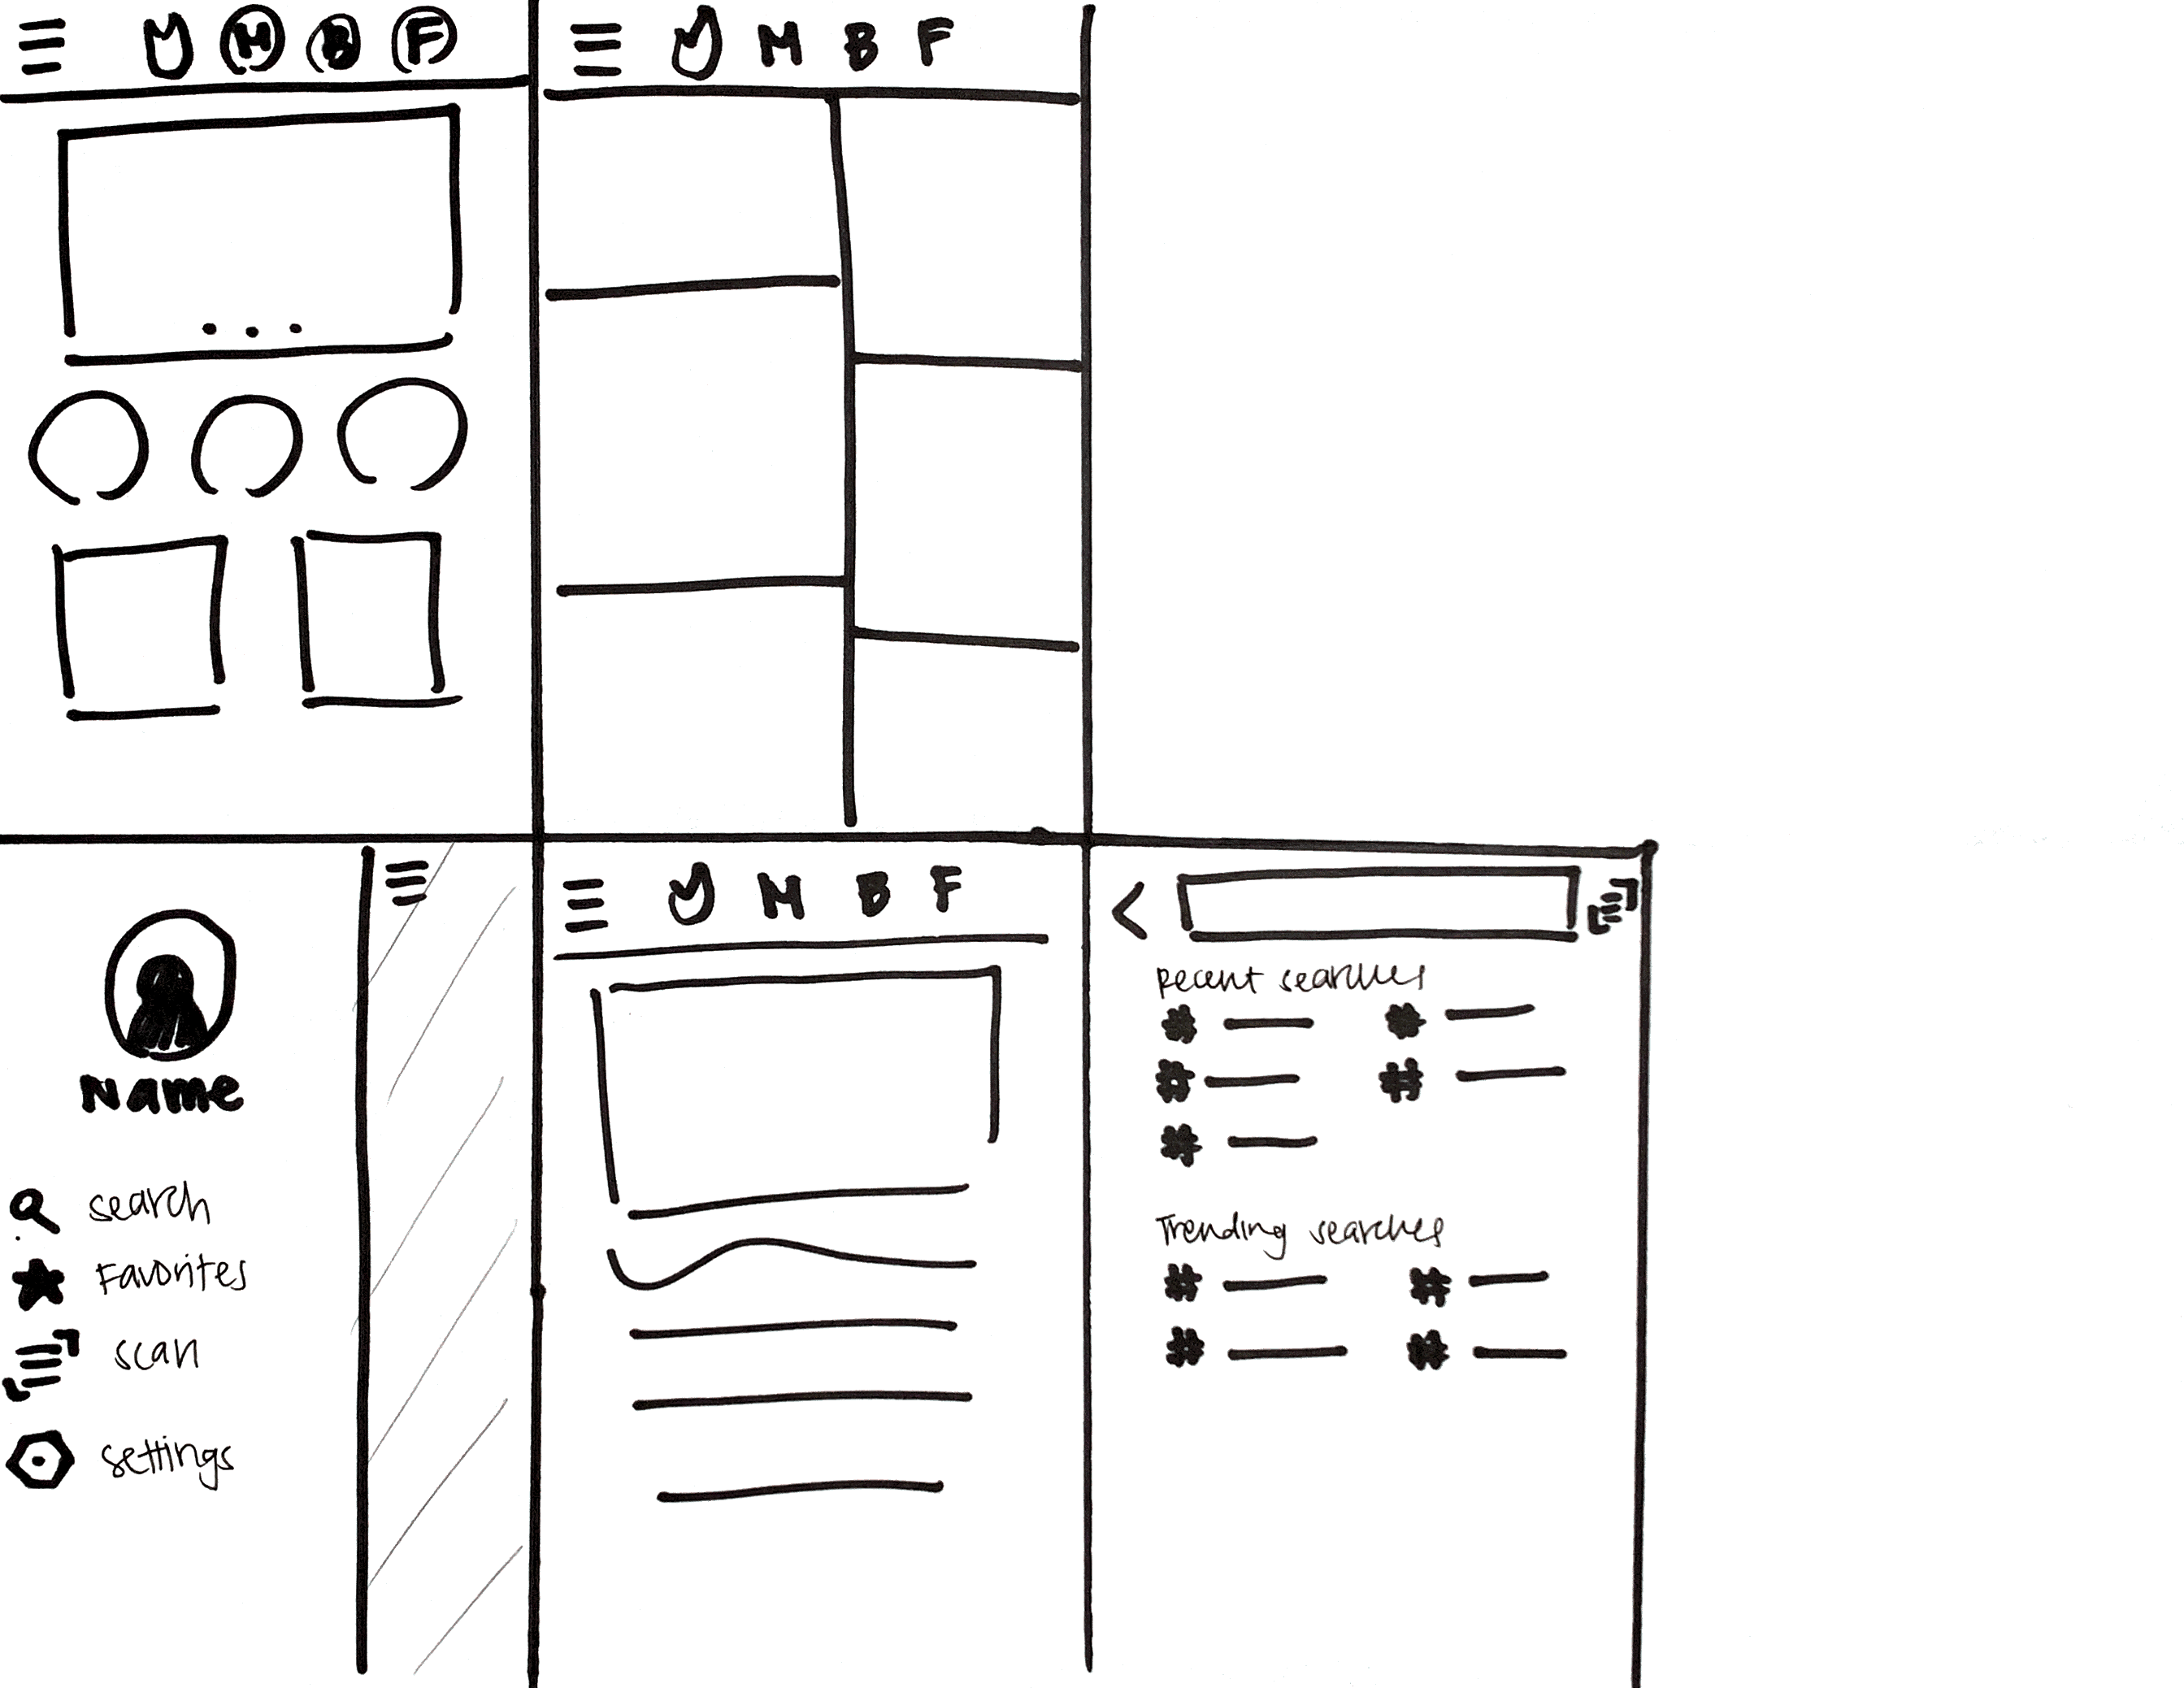 M B F
M B F
Name
search
Favorites
scan
settings
M B F
< 
Recent searches
# #
# #
#
Trending searches
# #
# #